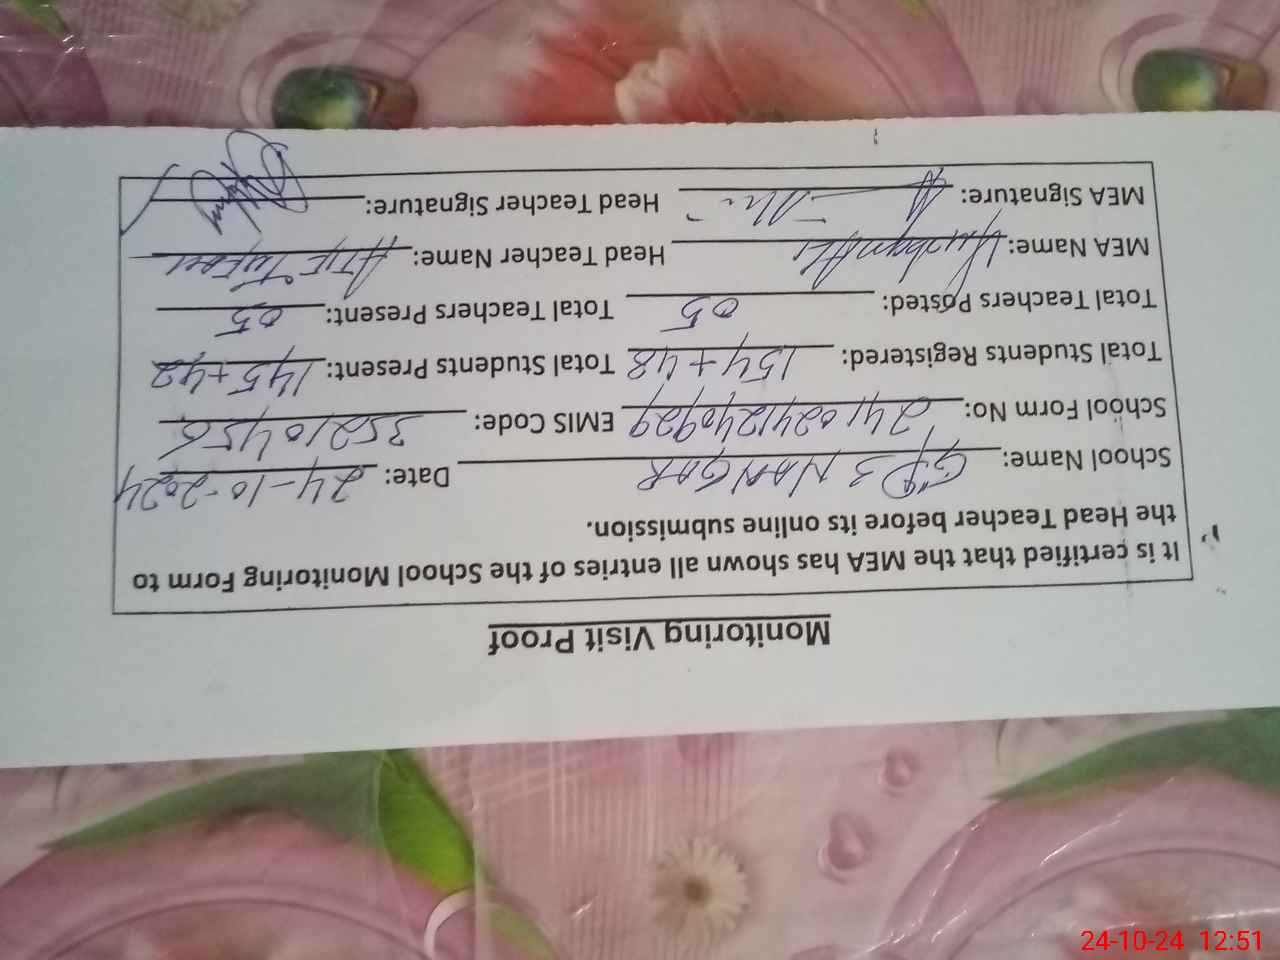 Monitoring Visit Proof
It is certified that the MEA has shown all entries of the School Monitoring Form to
the Head Teacher before its online submission.
School Name: GPS NANGAR Date: 24-10-2024
School Form No: 2410241240929 EMIS Code: 35210456
Total Students Registered: 154+48 Total Students Present: 145+42
Total Teachers Posted: 05 Total Teachers Present: 05
MEA Name: Head Teacher Name: ATIF
MEA Signature: Head Teacher Signature:
24-10-24 12:51